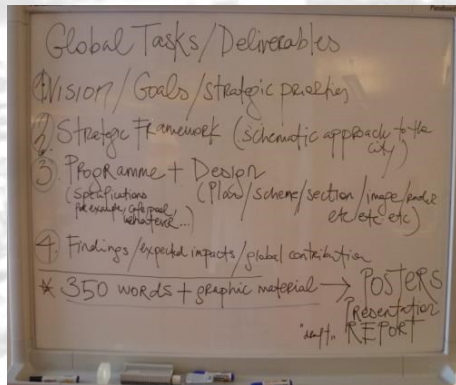 Global Tasks/Deliverables
1. Vision/Goals/strategic priorities
2. Strategic Framework (schematic approach to the city)
3. Programme + Design
(specifications (Plan/scheme/section/image/
for example, cafe, pool, etc etc etc)
whatever...)
4. Findings/expected impacts/global contribution
* 350 words + graphic material → POSTERS
Presentation
"draft" REPORT